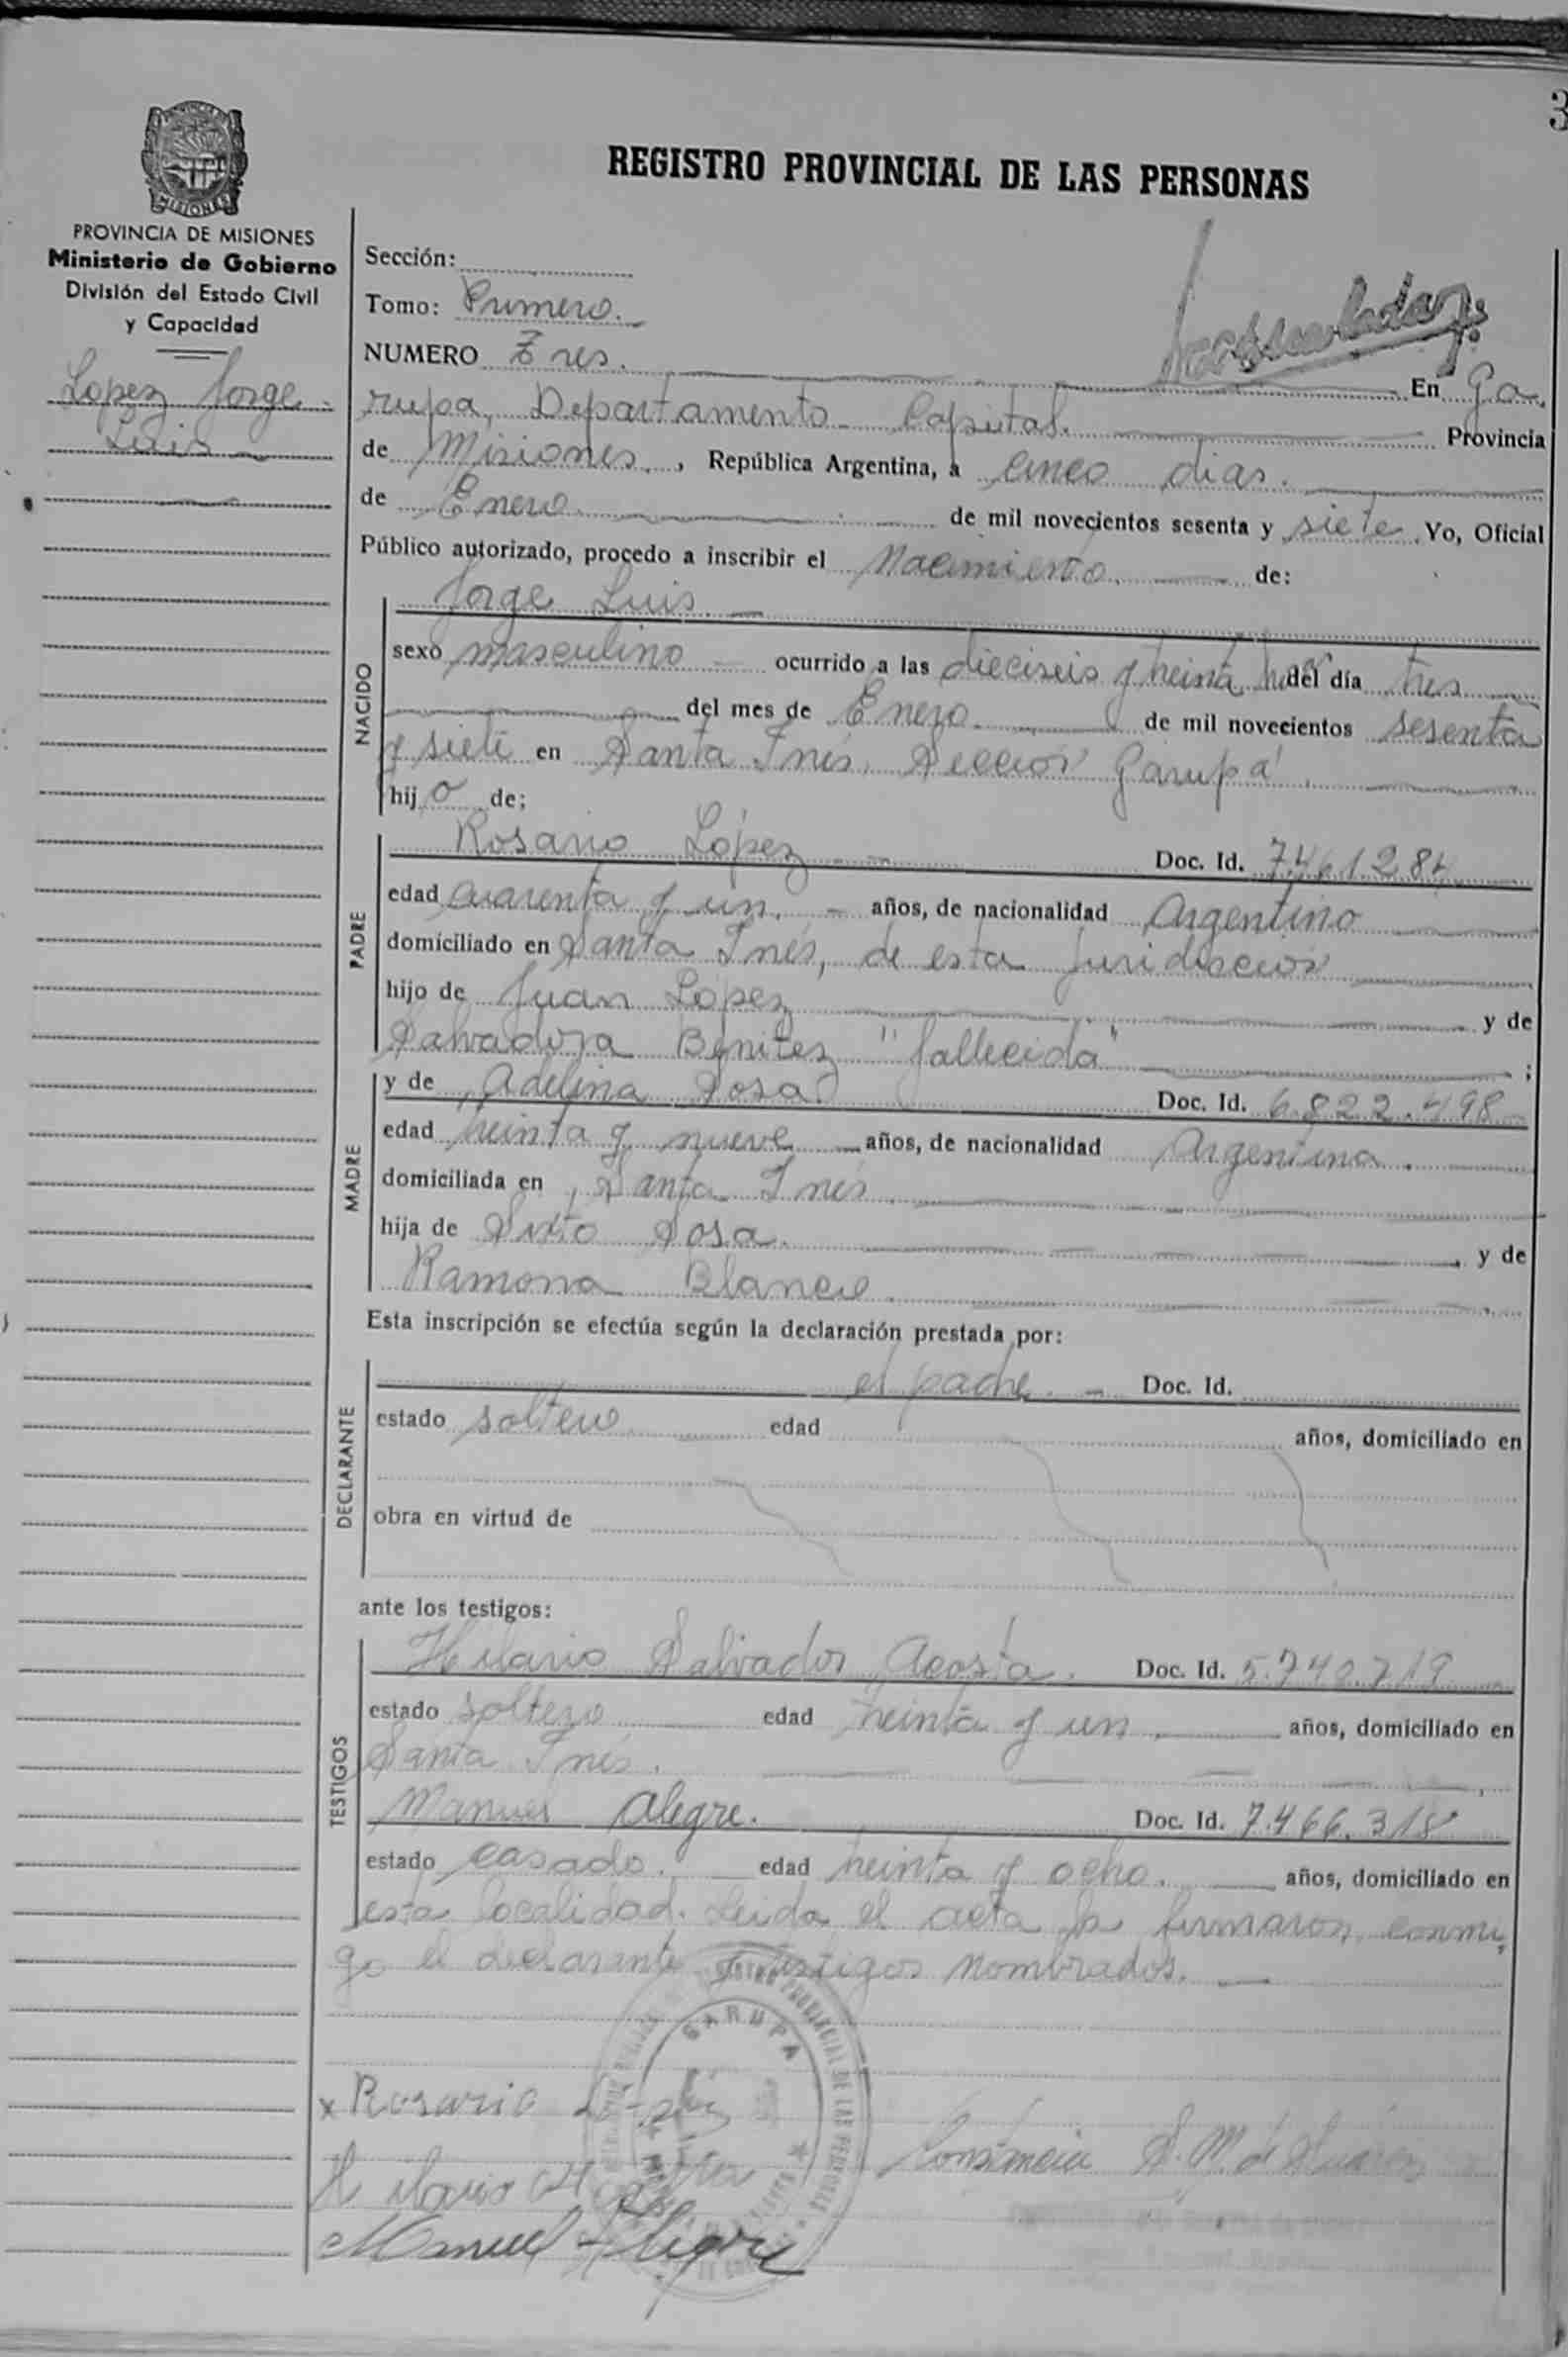 3
REGISTRO PROVINCIAL DE LAS PERSONAS
MISIONES
PROVINCIA DE MISIONES
Ministerio de Gobierno
División del Estado Civil
y Capacidad
Lopez Jorge
Luis
Sección:
Tomo: Primero.
NUMERO Tres. En Ga
rupa, Departamento Capital. Provincia
de Misiones, República Argentina, a cinco dias.
de Enero de mil novecientos sesenta y siete. Yo, Oficial
Público autorizado, procedo a inscribir el Nacimiento de:
NACIDO
Jorge Luis.
sexo masculino ocurrido a las dieciseis y treinta del día tres
del mes de Enero. de mil novecientos sesenta
y siete en Santa Inés, Sección Garupá
hijo de;
PADRE
Rosario López Doc. Id. 7.461.284
edad cuarenta y un. años, de nacionalidad Argentino
domiciliado en Santa Inés, de esta
hijo de Juan López y de
Salvadora Benitez "fallecida" ;
MADRE
y de Adelina Sosa Doc. Id. 6.822.498
edad treinta y nueve años, de nacionalidad Argentina.
domiciliada en Santa Inés
hija de Sixto Sosa. y de
Ramona
Esta inscripción se efectúa según la declaración prestada por:
DECLARANTE
el padre. Doc. Id.
estado soltero edad años, domiciliado en
obra en virtud de
ante los testigos:
TESTIGOS
Hilario Salvador Acosta. Doc. Id. 5.740.719
estado soltero edad treinta y un años, domiciliado en
Santa Inés.
Manuel Alegre. Doc. Id. 7.466.318
estado casado. edad treinta y ocho. años, domiciliado en
esta localidad. Leida el acta la firmaron conmi
go el declarante y testigos nombrados.
GARUPA
PROVINCIAL DE LAS PERSONAS
x Rosario
Hilario
Manuel Alegre